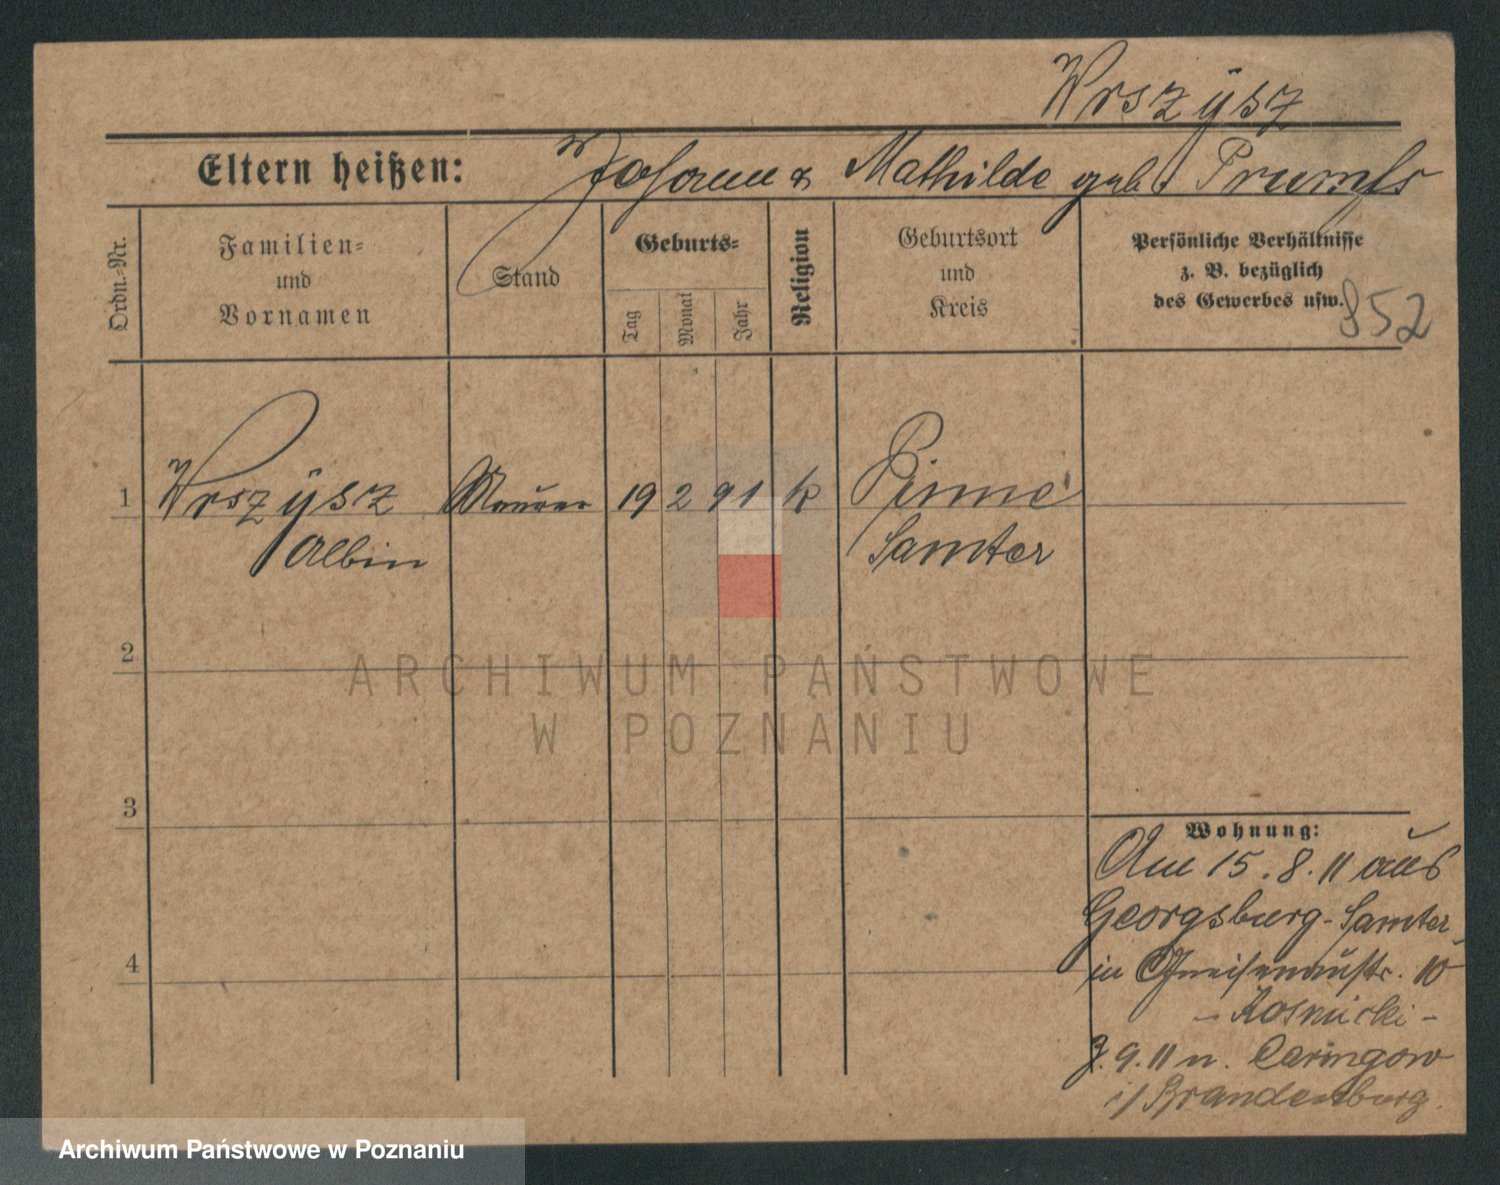 Wrszÿsz
Eltern heißen: Johann & Mathilde geb.
Ordn.-Nr.
Familien-
und
Vornamen
Stand
Geburts-
Tag
Monat
Jahr
Religion
Geburtsort
und
Kreis
Persönliche Verhältnisse
z. B. bezüglich
des Gewerbes usw.
852
1 Wrszÿsz Maurer 19 2 91 k Pinne
Albin Samter
2
3
4
Wohnung:
Am 15.8.11 aus
Georgsburg-Samter
in Gneisenaustr. 10
9.11 n.
i/ Brandenburg.
ARCHIWUM PAŃSTWOWE
W POZNANIU
Archiwum Państwowe w Poznaniu